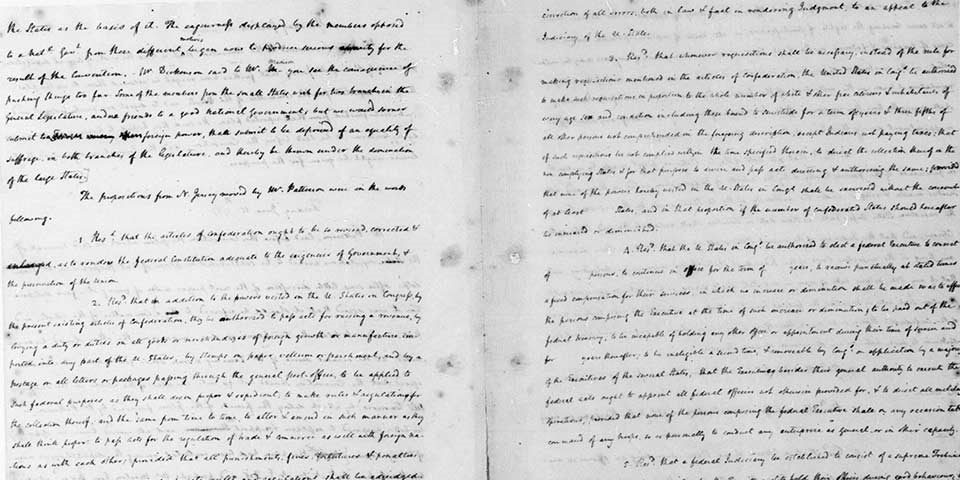 the States as the basis of it. The eagerness displayed by the members opposed
to a Natl. Govt. from these different motives began now to produce serious anxiety for the
result of the Convention. Mr Dickenson said to Mr. Madison you see the consequence of
pushing things too far. Some of the members from the small States wish for two branches in the
General Legislature, and are friends to a good National Government; but we would sooner
submit to foreign power, than submit to be deprived of an equality of
suffrage, in both branches of the legislature, and thereby be thrown under the domination
of the large States.
The propositions from N. Jersey moved by Mr. Patterson were in the words
following.
1. Resd. that the articles of Confederation ought to be so revised, corrected &
enlarged, as to render the federal Constitution adequate to the exigencies of Government, &
the preservation of the Union.
2. Resd. that in addition to the powers vested in the U. States in Congress, by
the present existing articles of Confederation, they be authorized to pass acts for raising a revenue, by
levying a duty or duties on all goods or merchandizes of foreign growth or manufacture, im-
ported into any part of the U. States, by Stamps on paper, vellum or parchment, and by a
postage on all letters or packages passing through the general post-office, to be applied to
such federal purposes as they shall deem proper & expedient; to make rules & regulations for
the collection thereof; and the same from time to time, to alter & amend in such manner as they
shall think proper: to pass Acts for the regulation of trade & commerce as well with foreign na-
tions as with each other; provided that all punishments, fines, forfeitures & penalties
rules and regulations shall be adjudged
correction of all errors, both in law & fact in rendering Judgment, to an appeal to the
Judiciary of the U. States.
3. Resd. that whenever requisitions shall be necessary, instead of the rule for
making requisitions mentioned in the articles of Confederation, the United States in Congs. be authorized
to make such requisitions in proportion to the whole number of white & other free citizens & inhabitants of
every age sex and condition including those bound to servitude for a term of years & three fifths of
all other persons not comprehended in the foregoing description, except Indians not paying taxes; that
if such requisitions be not complied with, in the time specified therein, to direct the collection thereof in the
non complying States & for that purpose to devise and pass acts directing & authorizing the same; provided
that none of the powers hereby vested in the U. States in Congs. shall be exercised without the consent
of at least States, and in that proportion if the number of confederated States should hereafter
be increased or diminished.
4. Resd. that the U. States in Congs. be authorized to elect a federal Executive to consist
of persons, to continue in office for the term of years, to receive punctually at stated times
a fixed compensation for their services, in which no increase or diminution shall be made so as to affect
the persons composing the Executive at the time of such increase or diminution, to be paid out of the
federal treasury; to be incapable of holding any other office or appointment during their time of service and
for years thereafter; to be ineligible a second time, & removeable by Congs. on application by a majority
of the Executives of the several States; that the Executives besides their general authority to execute the
federal acts ought to appoint all federal officers not otherwise provided for, & to direct all military
operations; provided that none of the persons composing the federal Executive shall on any occasion take
command of any troops, so as personally to conduct any enterprise as General, or in other capacity.
5. Resd. that a federal Judiciary be established to consist of a supreme Tribunal
hold their Offices during good behaviour,